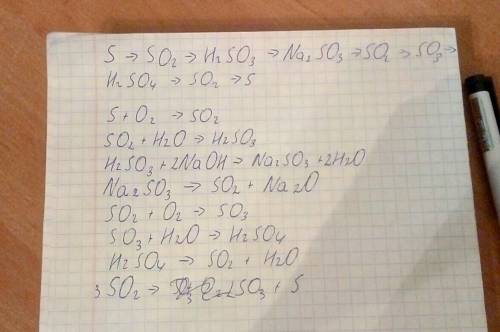 S → SO₂ → H₂SO₃ → Na₂SO₃ → SO₂ → SO₃ →
H₂SO₄ → SO₂ → S
S + O₂ → SO₂
SO₂ + H₂O → H₂SO₃
H₂SO₃ + 2NaOH → Na₂SO₃ + 2H₂O
Na₂SO₃ → SO₂ + Na₂O
SO₂ + O₂ → SO₃
SO₃ + H₂O → H₂SO₄
H₂SO₄ → SO₂ + H₂O
3SO₂ → 2SO₃ + S